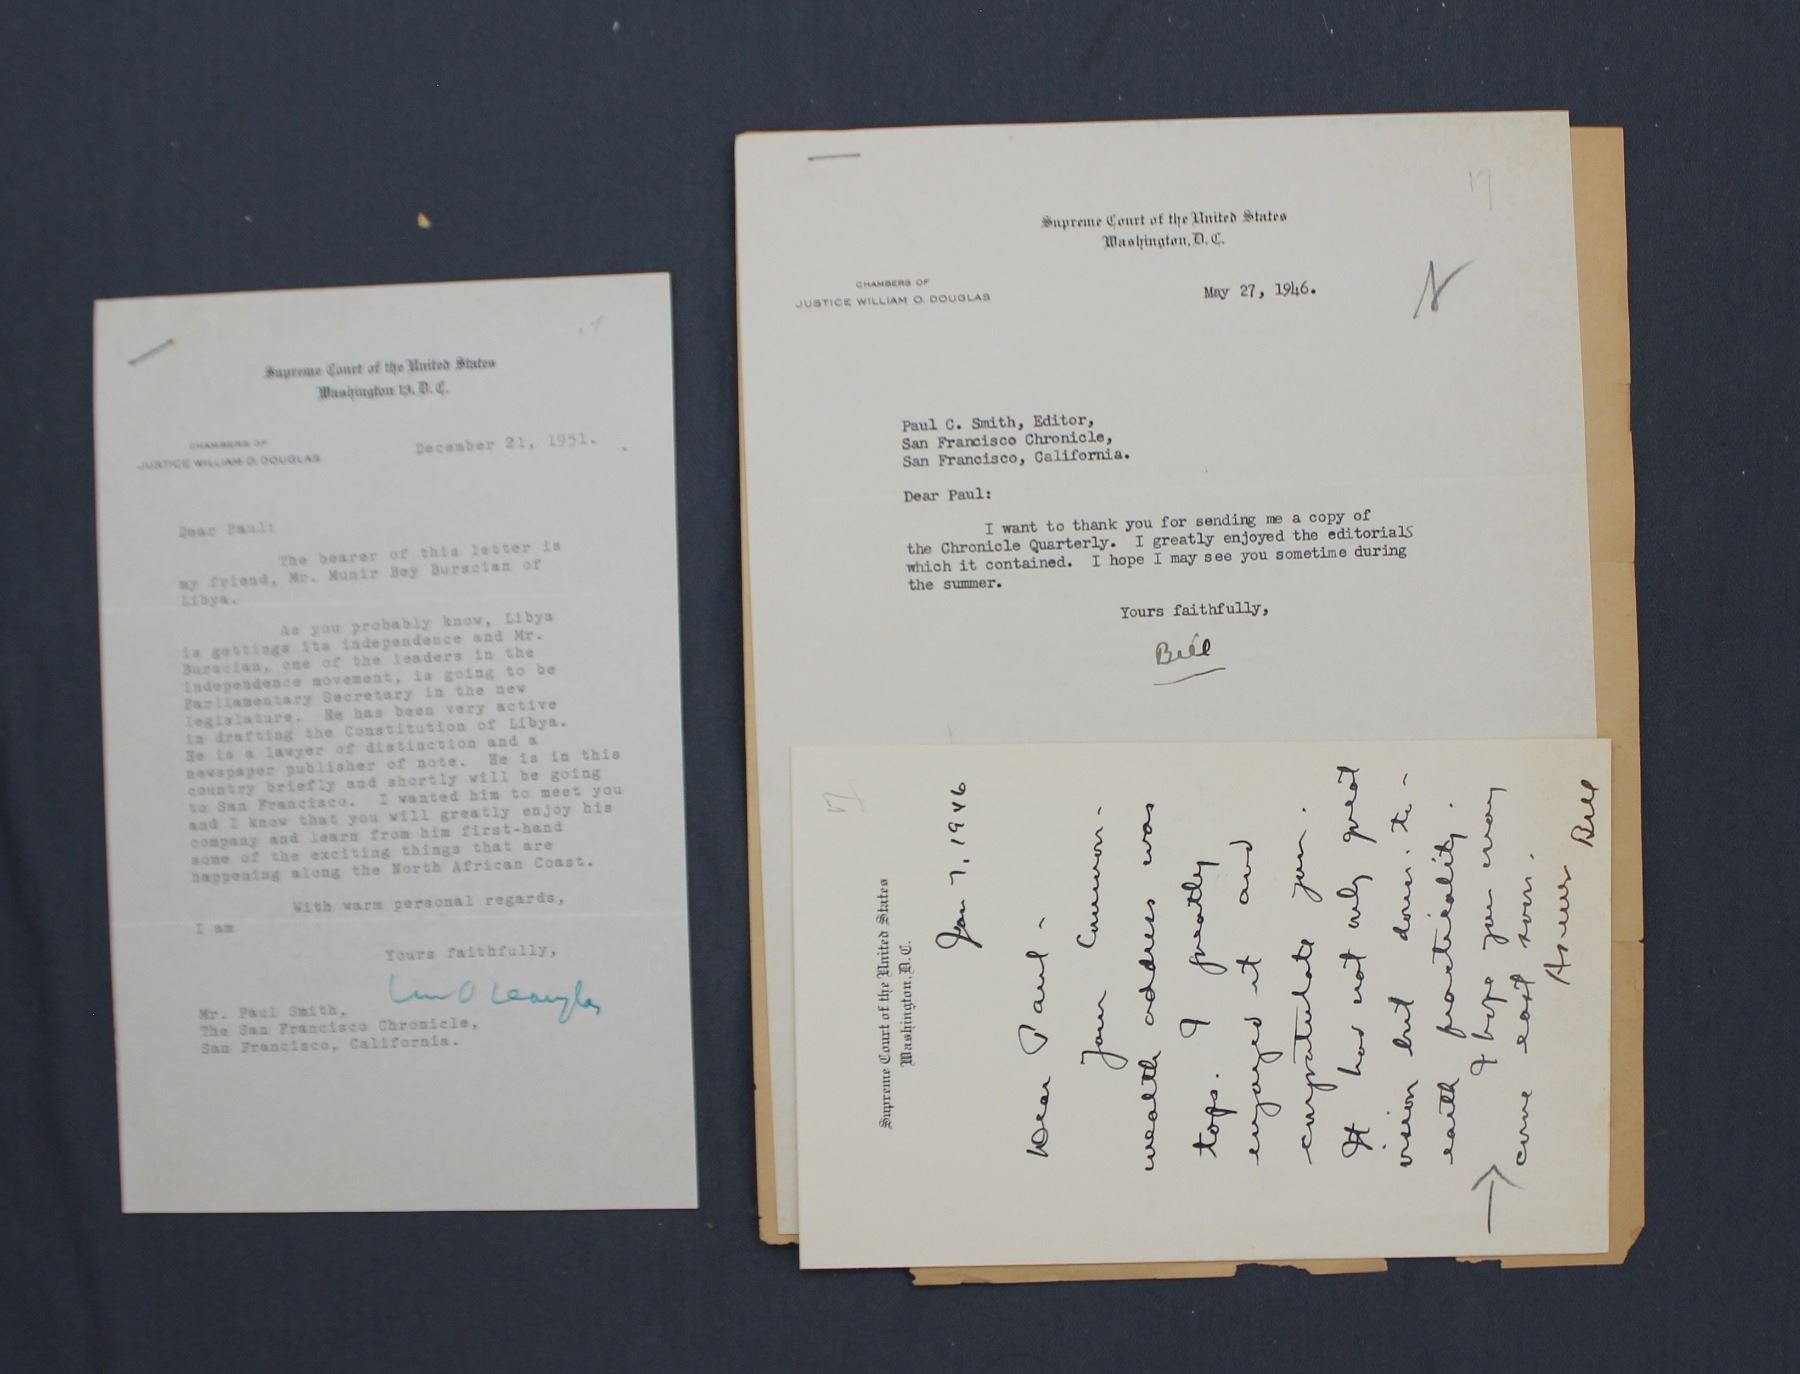 Supreme Court of the United States
Washington 13, D. C.
CHAMBERS OF
JUSTICE WILLIAM O. DOUGLAS
December 21, 1951.
Dear Paul:
The bearer of this letter is
my friend, Mr. Munir Bey Burscian of
Libya.
As you probably know, Libya
is gettings its independence and Mr.
Burscian, one of the leaders in the
independence movement, is going to be
Parliamentary Secretary in the new
legislature. He has been very active
in drafting the Constitution of Libya.
He is a lawyer of distinction and a
newspaper publisher of note. He is in this
country briefly and shortly will be going
to San Francisco. I wanted him to meet you
and I know that you will greatly enjoy his
company and learn from him first-hand
some of the exciting things that are
happening along the North African Coast.
With warm personal regards,
I am
Yours faithfully,
Wm O Douglas
Mr. Paul Smith,
The San Francisco Chronicle,
San Francisco, California.
17
Supreme Court of the United States
Washington, D. C.
CHAMBERS OF
JUSTICE WILLIAM O. DOUGLAS
May 27, 1946.
Paul C. Smith, Editor,
San Francisco Chronicle,
San Francisco, California.
Dear Paul:
I want to thank you for sending me a copy of
the Chronicle Quarterly. I greatly enjoyed the editorials
which it contained. I hope I may see you sometime during
the summer.
Yours faithfully,
Bill
17
Supreme Court of the United States
Washington, D. C.
Jan 7, 1946
Dear Paul -
Your Common-
wealth address was
tops. I greatly
enjoyed it and
congratulate you.
It has not only great
vision but down-to-
earth practicality.
I hope you may
come east soon.
As ever
Bill